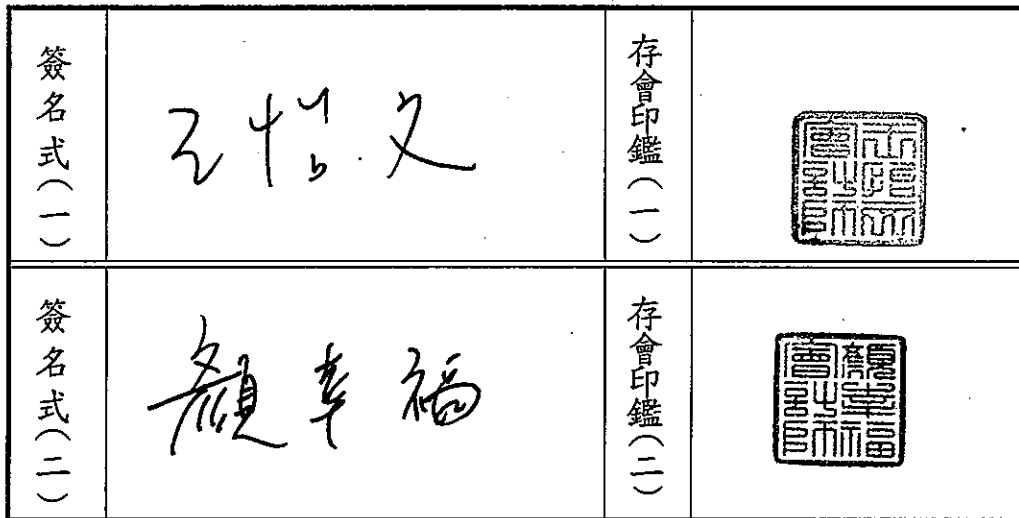 簽名式(一)
王怡文
存會印鑑(一)
簽名式(二)
顏幸福
存會印鑑(二)
顏幸福會計師